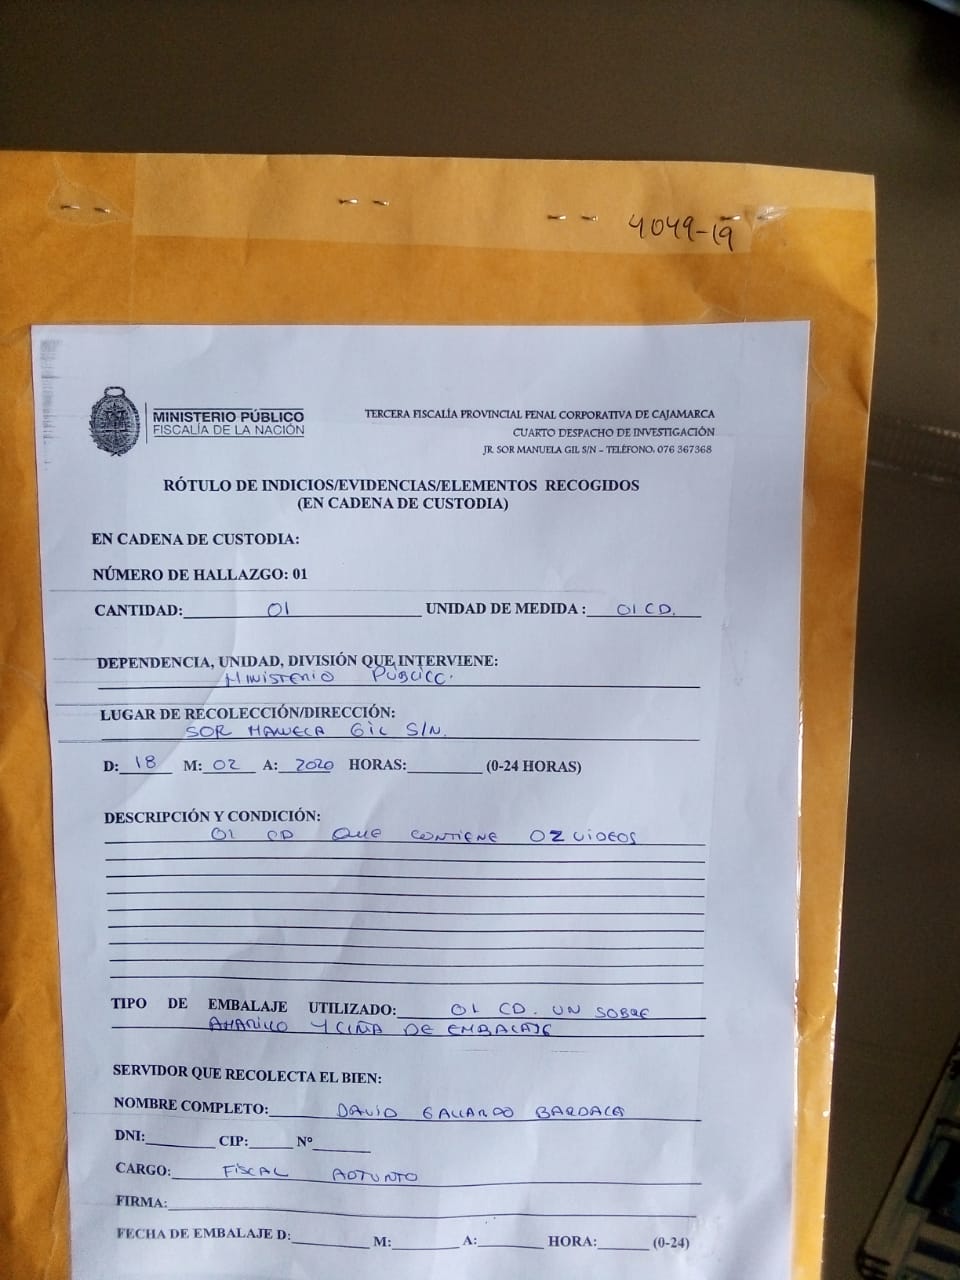 4049-19
MINISTERIO PÚBLICO
FISCALÍA DE LA NACIÓN
TERCERA FISCALÍA PROVINCIAL PENAL CORPORATIVA DE CAJAMARCA
CUARTO DESPACHO DE INVESTIGACIÓN
JR. SOR MANUELA GIL S/N – TELÉFONO. 076 367368
RÓTULO DE INDICIOS/EVIDENCIAS/ELEMENTOS RECOGIDOS
(EN CADENA DE CUSTODIA)
EN CADENA DE CUSTODIA:
NÚMERO DE HALLAZGO: 01
CANTIDAD: 01 UNIDAD DE MEDIDA : 01 CD.
DEPENDENCIA, UNIDAD, DIVISIÓN QUE INTERVIENE:
MINISTERIO PÚBLICO.
LUGAR DE RECOLECCIÓN/DIRECCIÓN:
SOR MANUELA GIL S/N.
D: 18 M: 02 A: 2020 HORAS: (0-24 HORAS)
DESCRIPCIÓN Y CONDICIÓN:
01 CD QUE CONTIENE 02 VIDEOS
TIPO DE EMBALAJE UTILIZADO: 01 CD. UN SOBRE
AMARILLO Y CINTA DE EMBALAJE
SERVIDOR QUE RECOLECTA EL BIEN:
NOMBRE COMPLETO: DAVID GALLARDO
DNI: CIP: Nº
CARGO: FISCAL ADJUNTO
FIRMA:
FECHA DE EMBALAJE D: M: A: HORA: (0-24)